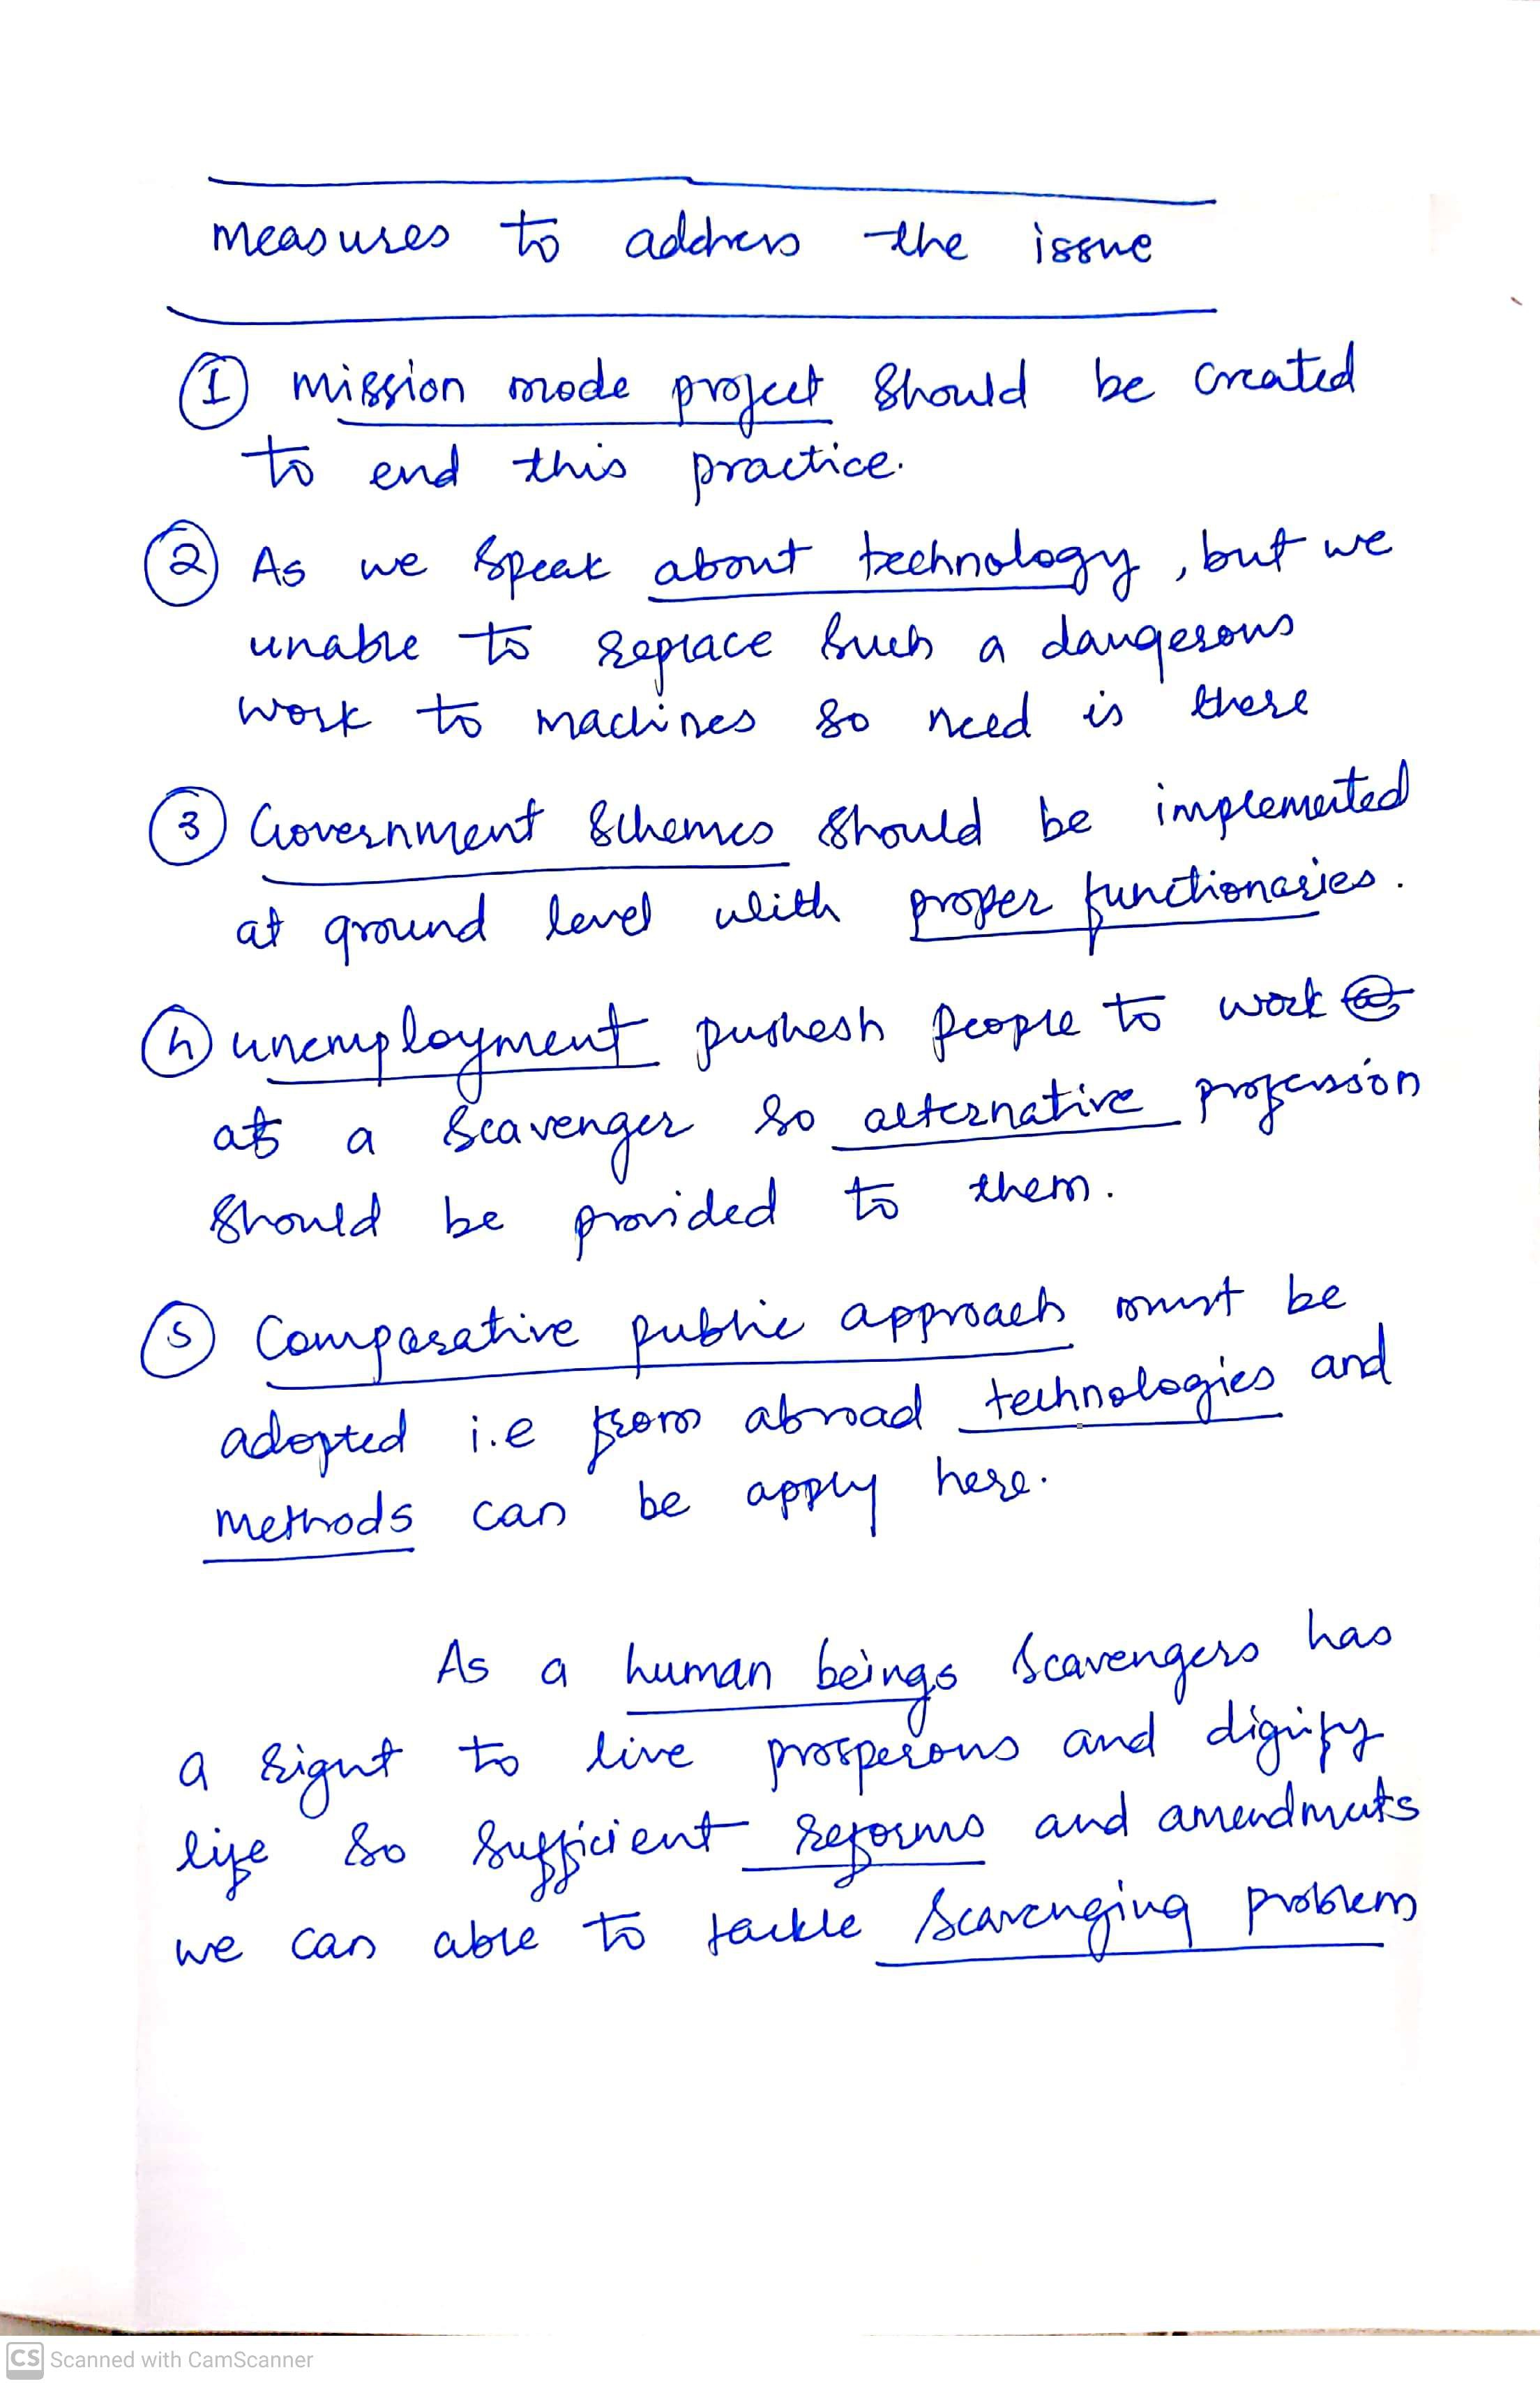 measures to address the issue
① mission mode project should be created
to end this practice.
② As we speak about technology, but we
unable to replace such a dangerous
work to machines so need is there
③ Government Schemes should be implemented
at ground level with proper functionaries.
④ unemployment pushesh people to work
as a scavenger so alternative profession
should be provided to them.
⑤ Comparative public approach must be
adopted i.e from abroad technologies and
methods can be apply here.
As a human beings scavengers has
a right to live prosperous and dignify
life so sufficient reforms and amendments
we can able to tackle scavenging problem
CS Scanned with CamScanner